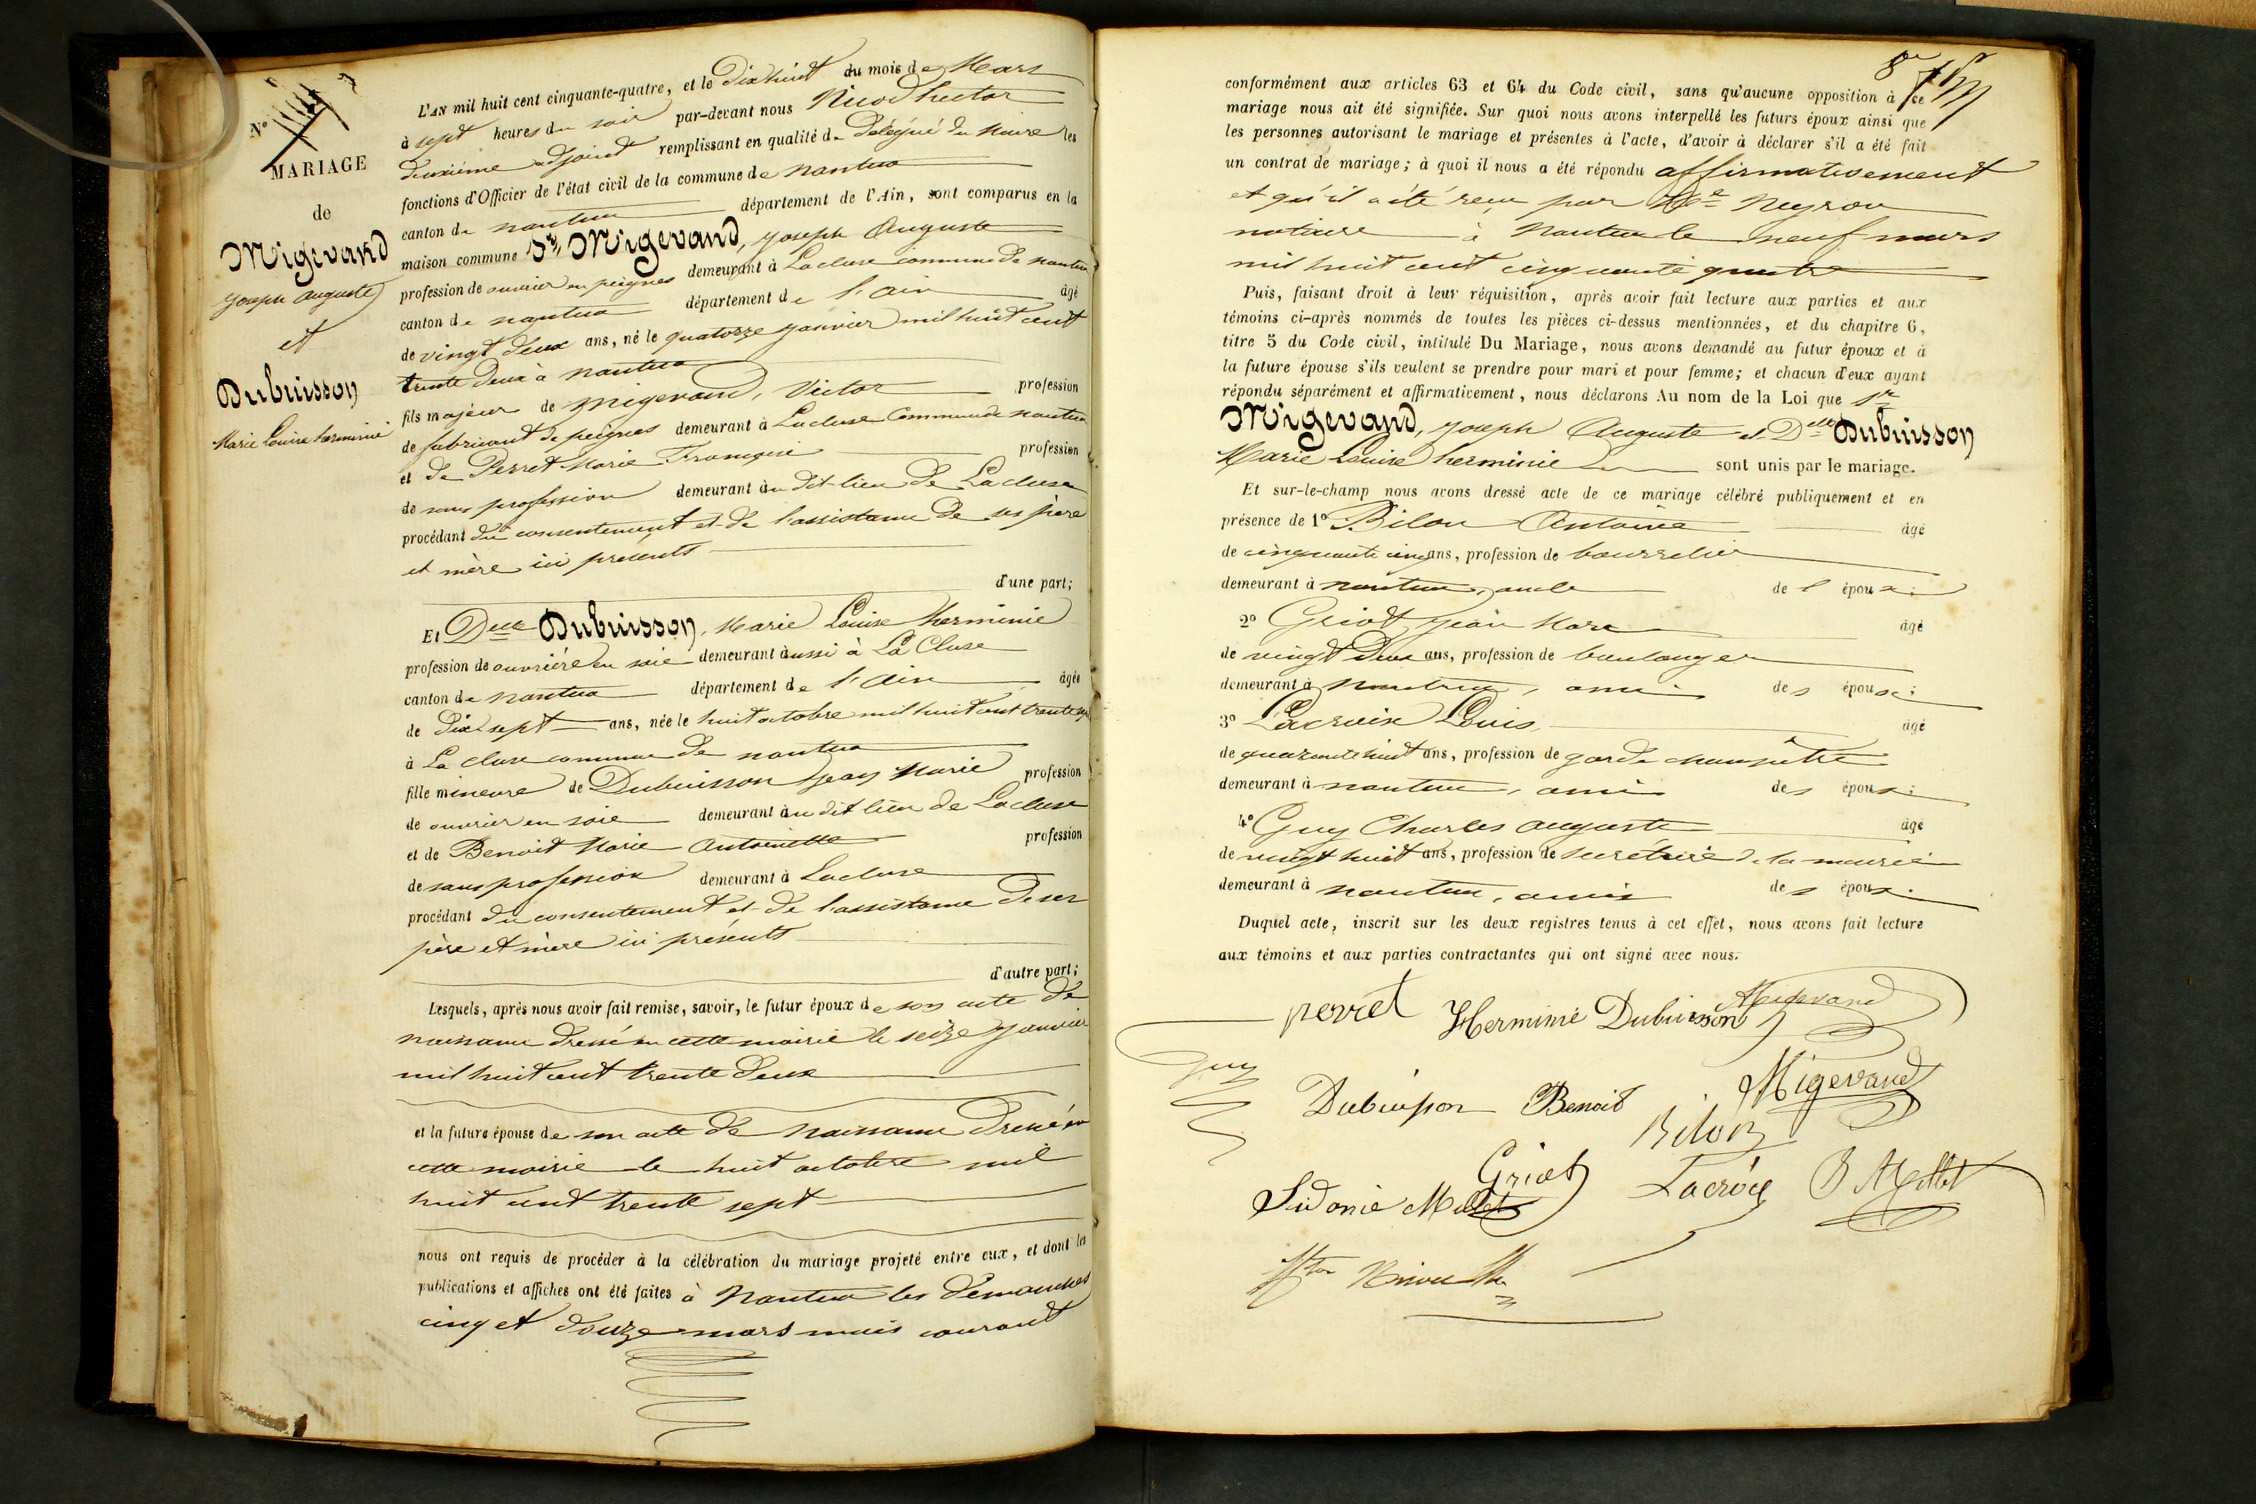 Nº
MARIAGE
de
Migevand
Joseph Auguste
et
Dubuisson
Marie Louise herminie
L'AN mil huit cent cinquante-quatre, et le Dix huit du mois de Mars
à sept heures du soir par-devant nous Nicod hector
deuxième adjoint remplissant en qualité de Délégué du Maire les
fonctions d'Officier de l'état civil de la commune de nantua
canton de nantua département de l'Ain, sont comparus en la
maison commune Sr Migevand, Joseph Auguste
profession de ouvrier en peignes demeurant à Lacluse commune de nantua
canton de nantua département de l'ain âgé
de vingt deux ans, né le quatorze janvier mil huit cent
trente deux à nantua
fils majeur de Migevand, Victor profession
de fabricant de peignes demeurant à Lacluse Commune de nantua
et de Perret Marie Françoise profession
de sans profession demeurant au dit lieu de Lacluse
procédant du consentement et de l'assistance de ses père
et mère ici presents
d'une part;
Et Delle Dubuisson, Marie Louise Herminie
profession de ouvrière en soie demeurant aussi à La Cluse
canton de nantua département de l'Ain âgée
de Dix sept ans, née le huit octobre mil huit cent trente sept
à La cluse commune de nantua
fille mineure de Dubuisson Jean Marie profession
de ouvrier en soie demeurant au dit lieu de Lacluse
et de Benoit Marie Antoinette profession
de sans profession demeurant à Lacluse
procédant du consentement et de l'assistance de ses
père et mère ici présents
d'autre part;
Lesquels, après nous avoir fait remise, savoir, le futur époux de son acte de
naissance dressé en cette mairie le seize janvier
mil huit cent trente deux
et la future épouse de son acte de naissance dressé en
cette mairie le huit octobre mil
huit cent trente sept
nous ont requis de procéder à la célébration du mariage projeté entre eux, et dont les
publications et affiches ont été faites à Nantua les dimanches
cinq et douze mars mois courant
conformément aux articles 63 et 64 du Code civil, sans qu'aucune opposition à ce
mariage nous ait été signifiée. Sur quoi nous avons interpellé les futurs époux ainsi que
les personnes autorisant le mariage et présentes à l'acte, d'avoir à déclarer s'il a été fait
un contrat de mariage; à quoi il nous a été répondu affirmativement
et qu'il a été reçu par Me Neyron
notaire à Nantua le neuf mars
mil huit cent cinquante quatre
Puis, faisant droit à leur réquisition, après avoir fait lecture aux parties et aux
témoins ci-après nommés de toutes les pièces ci-dessus mentionnées, et du chapitre 6,
titre 5 du Code civil, intitulé Du Mariage, nous avons demandé au futur époux et à
la future épouse s'ils veulent se prendre pour mari et pour femme; et chacun d'eux ayant
répondu séparément et affirmativement, nous déclarons Au nom de la Loi que Sr
Migevand, Joseph Auguste et Delle Dubuisson
Marie Louise herminie sont unis par le mariage.
Et sur-le-champ nous avons dressé acte de ce mariage célébré publiquement et en
présence de 1º Bilon Antoine âgé
de cinquante cinq ans, profession de bourrelier
demeurant à nantua, oncle de l'époux;
2º Griot Jean Marc âgé
de vingt deux ans, profession de boulanger
demeurant à nantua, ami des époux;
3º Lacroix Louis âgé
de quarante huit ans, profession de garde champêtre
demeurant à nantua, ami des époux;
4º Guy Charles Auguste âgé
de vingt huit ans, profession de secrétaire de la mairie
demeurant à nantua, ami des époux.
Duquel acte, inscrit sur les deux registres tenus à cet effet, nous avons fait lecture
aux témoins et aux parties contractantes qui ont signé avec nous.
perret Herminie Dubuisson Migevand
Guy
Dubuisson Benoit Migevand
Bilon
Griot Lacroix
Sidonie